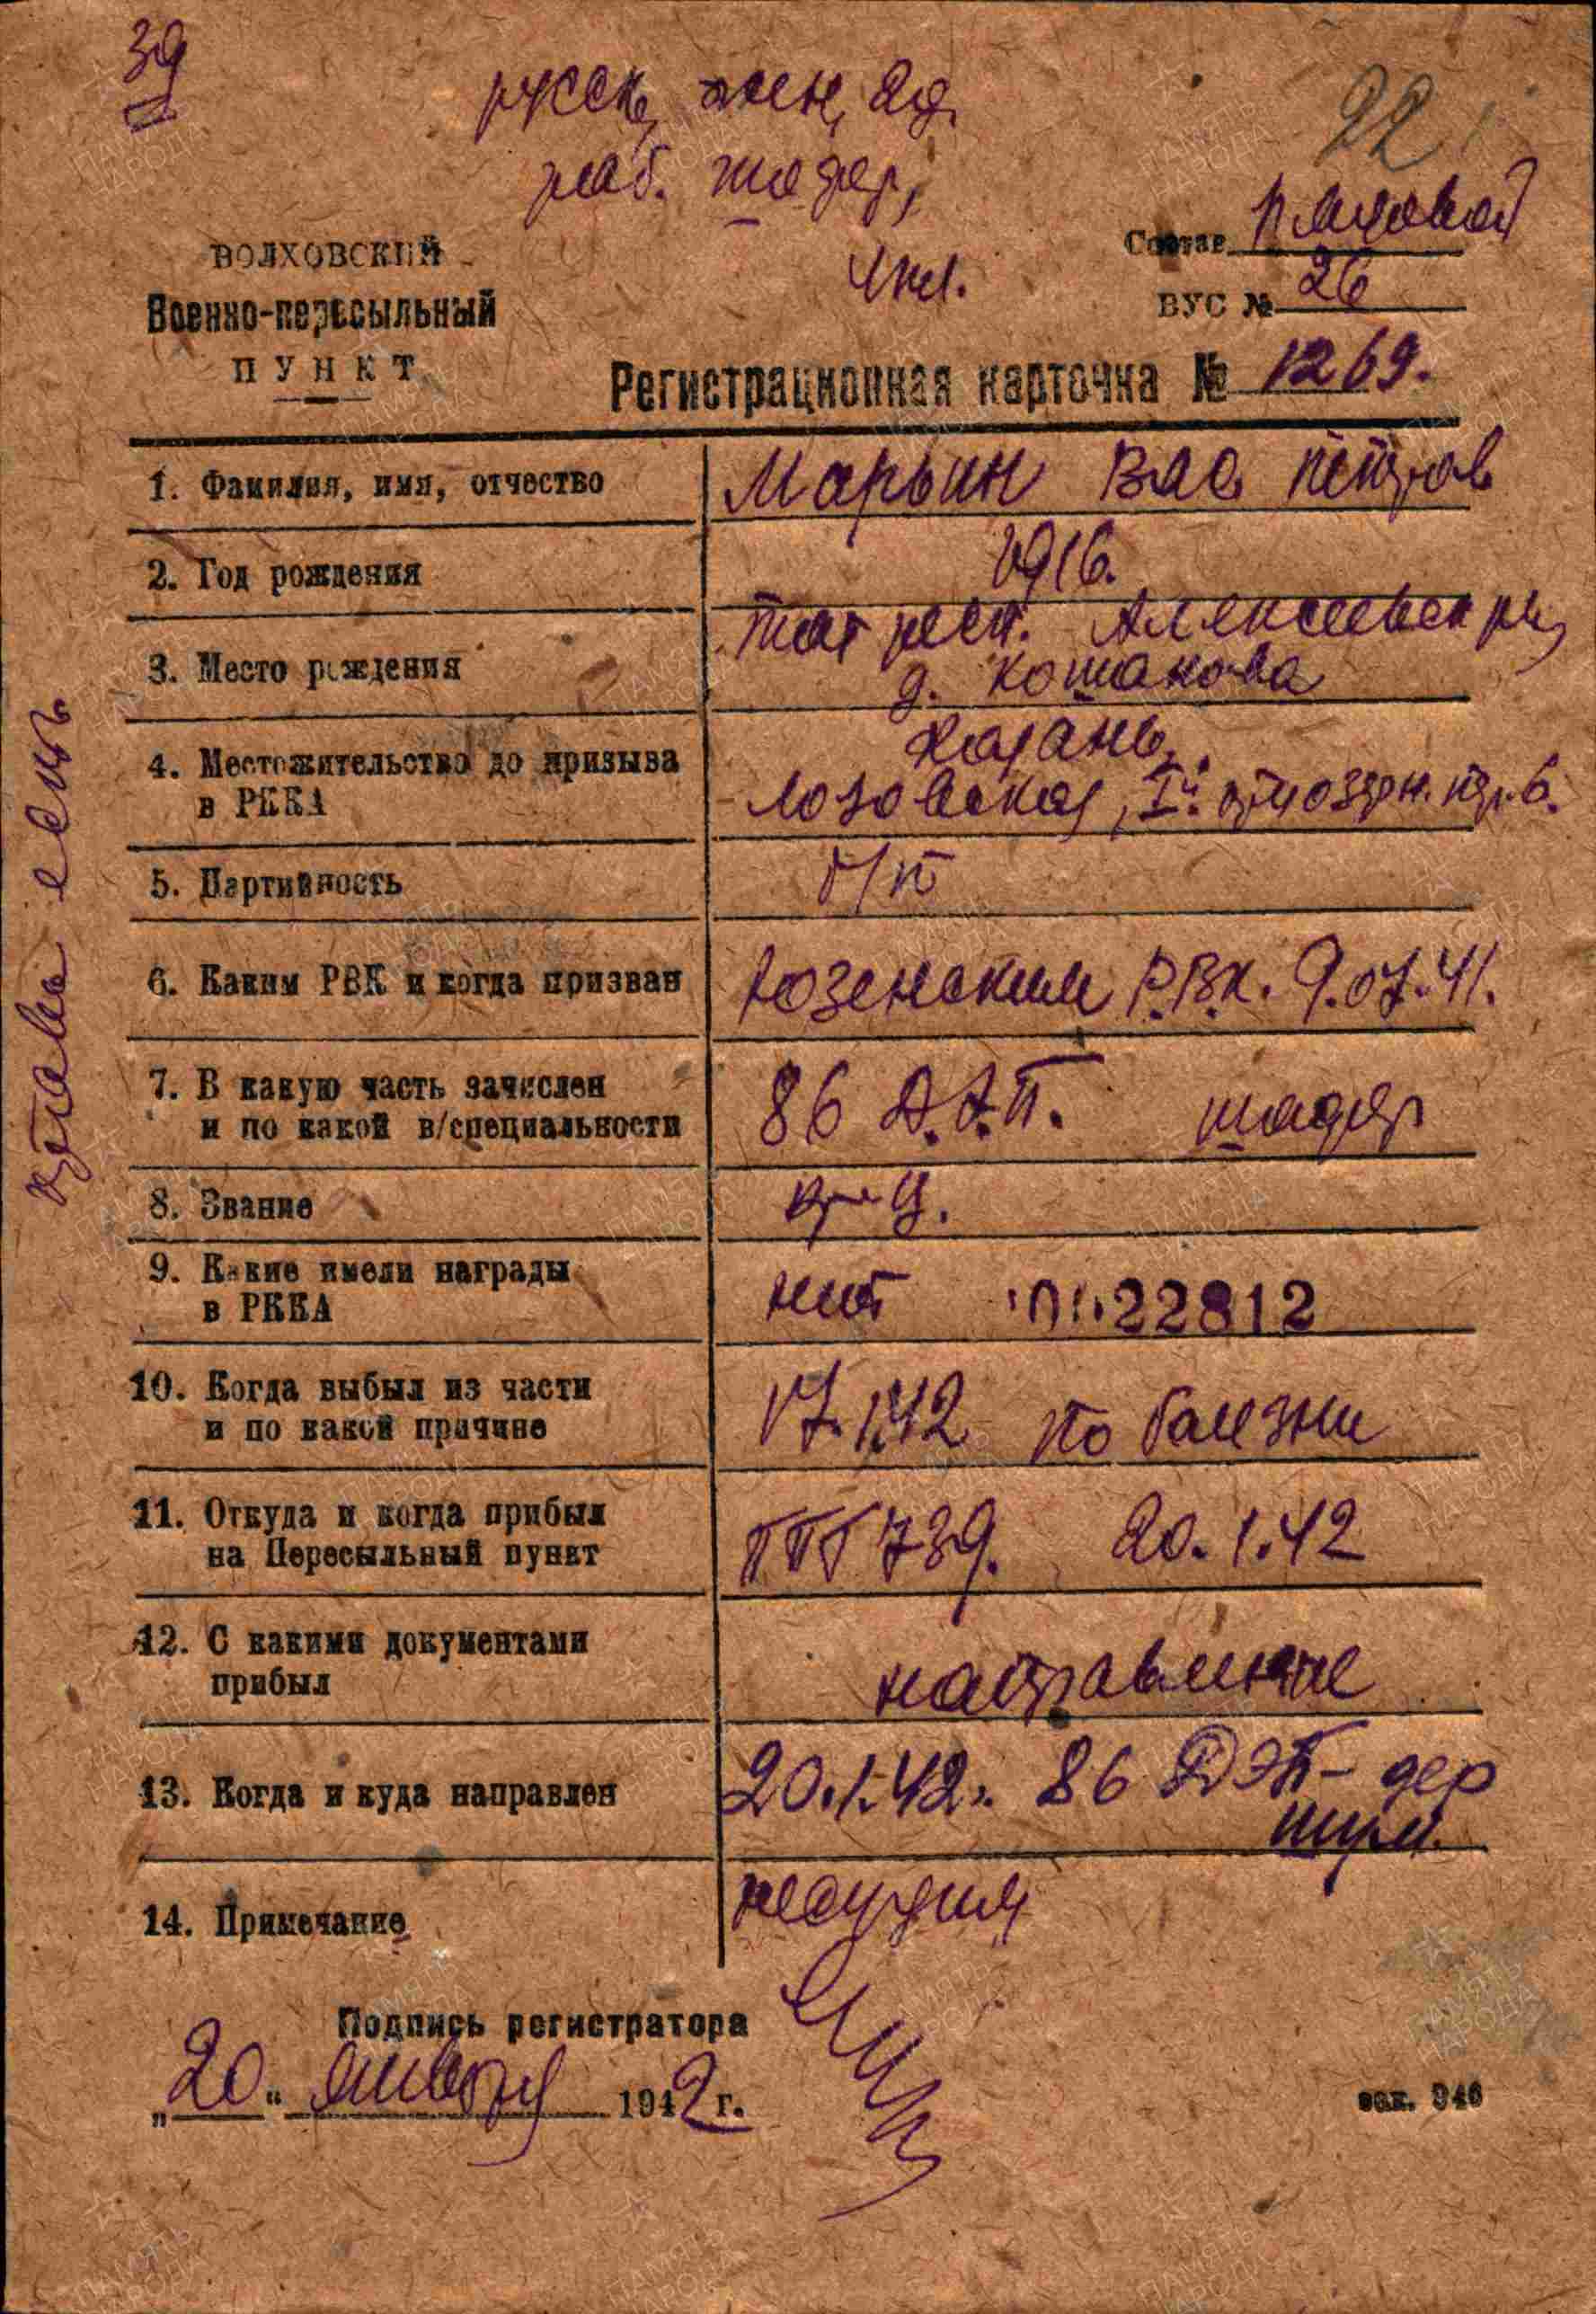 39
русск, жен, 2д.
раб. шофер,
4 кл.
22
ВОЛХОВСКИЙ
Военно-пересыльный
ПУНКТ
Состав рядовой
ВУС № 26
Регистрационная карточка № 1269.
1. Фамилия, имя, отчество Марьин Вас Петров
2. Год рождения 1916.
3. Место рождения Тат респ. Алексеевск рн,
д. Кошакова
4. Местожительство до призыва
в РККА Казань,
Лозовская,
5. Партийность б/п
6. Каким РВК и когда призван РВК. 9.07.41.
7. В какую часть зачислен
и по какой в/специальности 86 шофер
8. Звание кр-ц.
9. Какие имели награды
в РККА нет 22812
10. Когда выбыл из части
и по какой причине 17.1.42 по болезни
11. Откуда и когда прибыл
на Пересыльный пункт ППГ 739. 20.1.42
12. С какими документами
прибыл направление
13. Когда и куда направлен 20.1.42. 86 ДЭП - дер
14. Примечание несудим
Подпись регистратора
„20“ января 1942 г.
зак. 946
права есть